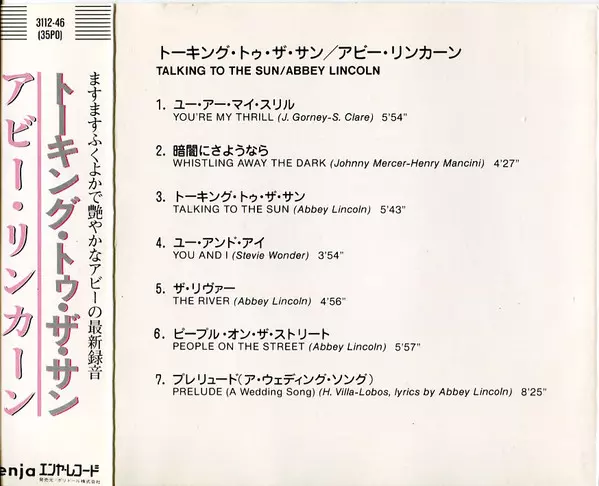 3112-46
(35P0)
ますますふくよかで艶やかなアビーの最新録音
トーキング・トゥ・ザ・サン
アビー・リンカーン
enja エンヤ・レコード
発売元・ポリドール株式会社
トーキング・トゥ・ザ・サン/アビー・リンカーン
TALKING TO THE SUN/ABBEY LINCOLN
1. ユー・アー・マイ・スリル
YOU'RE MY THRILL (J. Gorney-S. Clare) 5'54"
2. 暗闇にさようなら
WHISTLING AWAY THE DARK (Johnny Mercer-Henry Mancini) 4'27"
3. トーキング・トゥ・ザ・サン
TALKING TO THE SUN (Abbey Lincoln) 5'43"
4. ユー・アンド・アイ
YOU AND I (Stevie Wonder) 3'54"
5. ザ・リヴァー
THE RIVER (Abbey Lincoln) 4'56"
6. ピープル・オン・ザ・ストリート
PEOPLE ON THE STREET (Abbey Lincoln) 5'57"
7. プレリュード(ア・ウェディング・ソング)
PRELUDE (A Wedding Song) (H. Villa-Lobos, lyrics by Abbey Lincoln) 8'25"